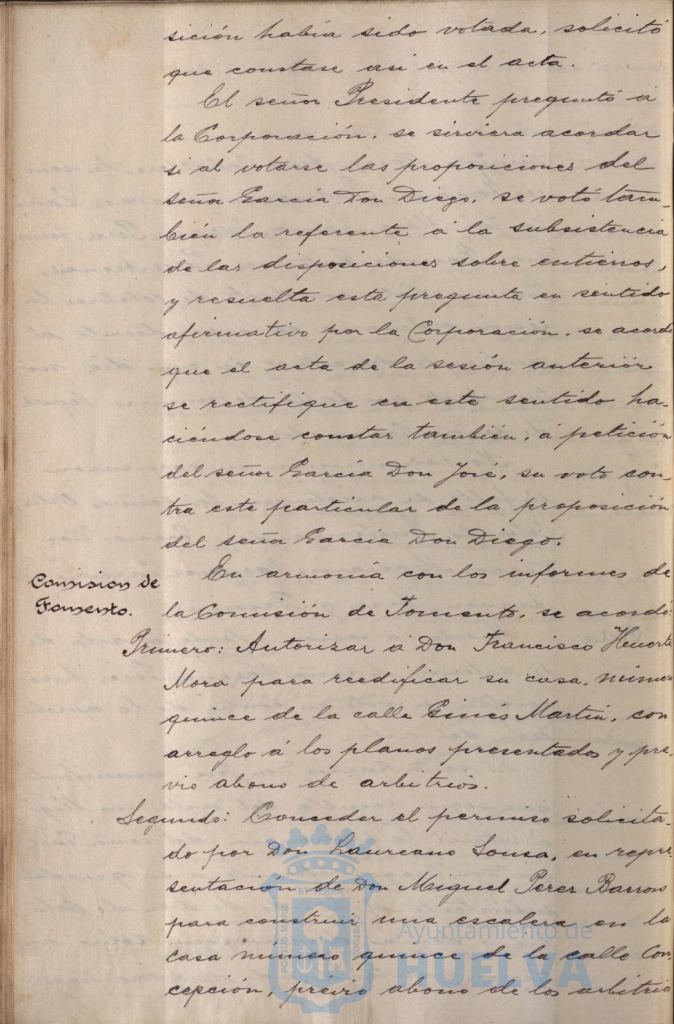 sición había sido votada, solicitó
que constase asi en el acta.
El señor Presidente preguntó á
la Corporación, se sirviera acordar
si al votarse las proposiciones del
señor García Don Diego, se votó tam-
bién la referente á la subsistencia
de las disposiciones sobre entierros,
y resuelta esta pregunta en sentido
afirmativo por la Corporación, se acordó
que el acta de la sesión anterior
se rectifique en este sentido ha-
ciéndose constar también, á petición
del señor García Don José, su voto con-
tra este particular de la proposición
del señor García Don Diego.
Comision de
Fomento.
En armonía con los informes de
la Comisión de Fomento, se acordó:
Primero: Autorizar á Don Francisco Huerta
Mora para reedificar su casa, número
quince de la calle Ginés Martín, con
arreglo á los planos presentados y pre-
vio abono de arbitrios.
Segundo: Conceder el permiso solicita-
do por Don Laureano Sousa, en repre-
sentación de Don Miguel Perez Barroso
para construir una escalera en la
casa número quince de la calle Con-
cepción, previo abono de los arbitrios
Ayuntamiento de
HUELVA